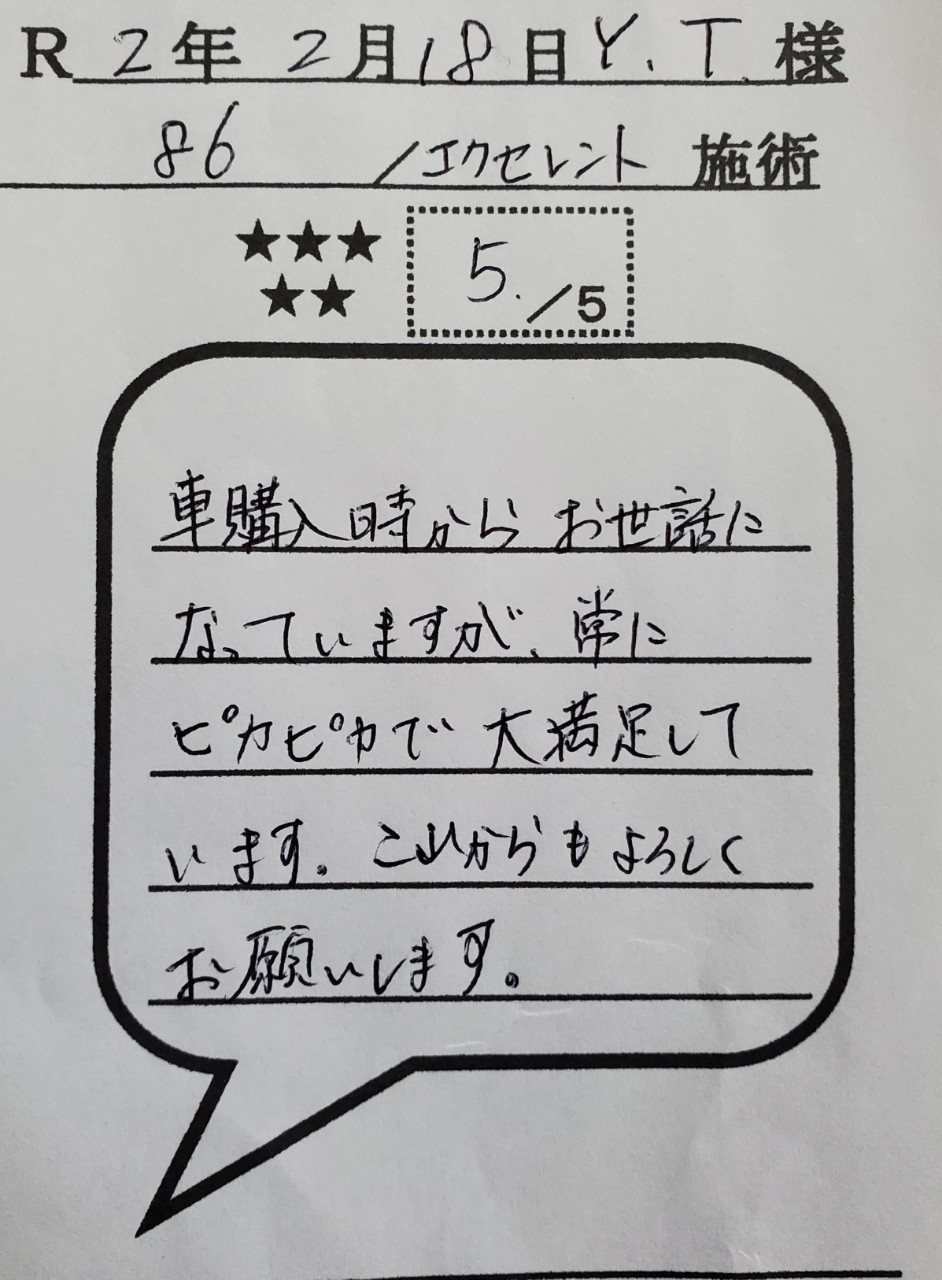 R 2年 2月18日 Y.T.様
86 /エクセレント 施術
★★★
★★
5./5
車購入時から お世話に
なっていますが、常に
ピカピカで 大満足して
います。これからも よろしく
お願いします。